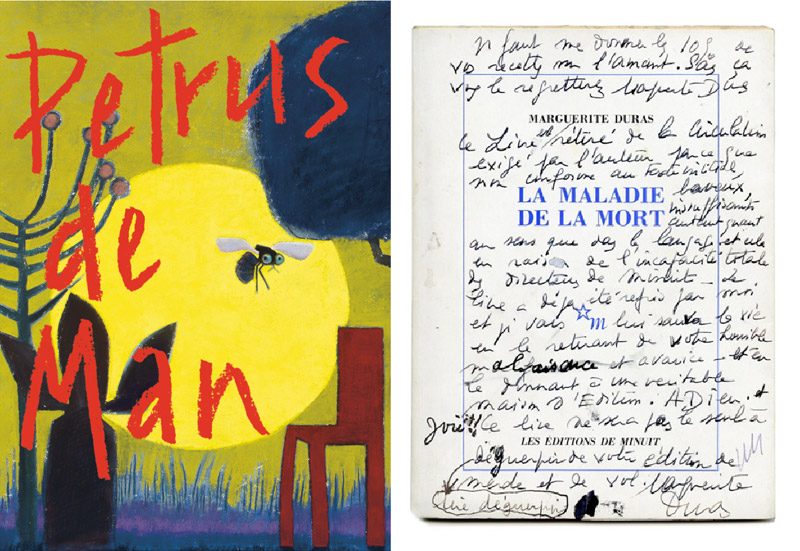 Petrus
de
Man
Il faut me donner les 10% de
vos recettes sur l'amant. Sans ça
vous le regretterez Marguerite Duras
MARGUERITE DURAS
Ce Livre est retiré de la circulation
exigé par l'auteur parce que
non conforme au texte initial,
LA MALADIE baveux,
DE LA MORT insuffisant
autant quant
au sens que le langage et cela
en raison de l'incapacité totale
des directeurs de Minuit - Le
livre a déjà été repris par moi
et je vais m lui sauver la vie
en le retirant de votre horrible
malfaisance et avarice - et en
le donnant à une véritable
maison d'Edition. ADieu. +
Joie!! Ce livre ne sera pas le seul à
LES EDITIONS DE MINUIT
déguerpir de votre édition de
merde et de vol Marguerite
lire déguerpir Duras